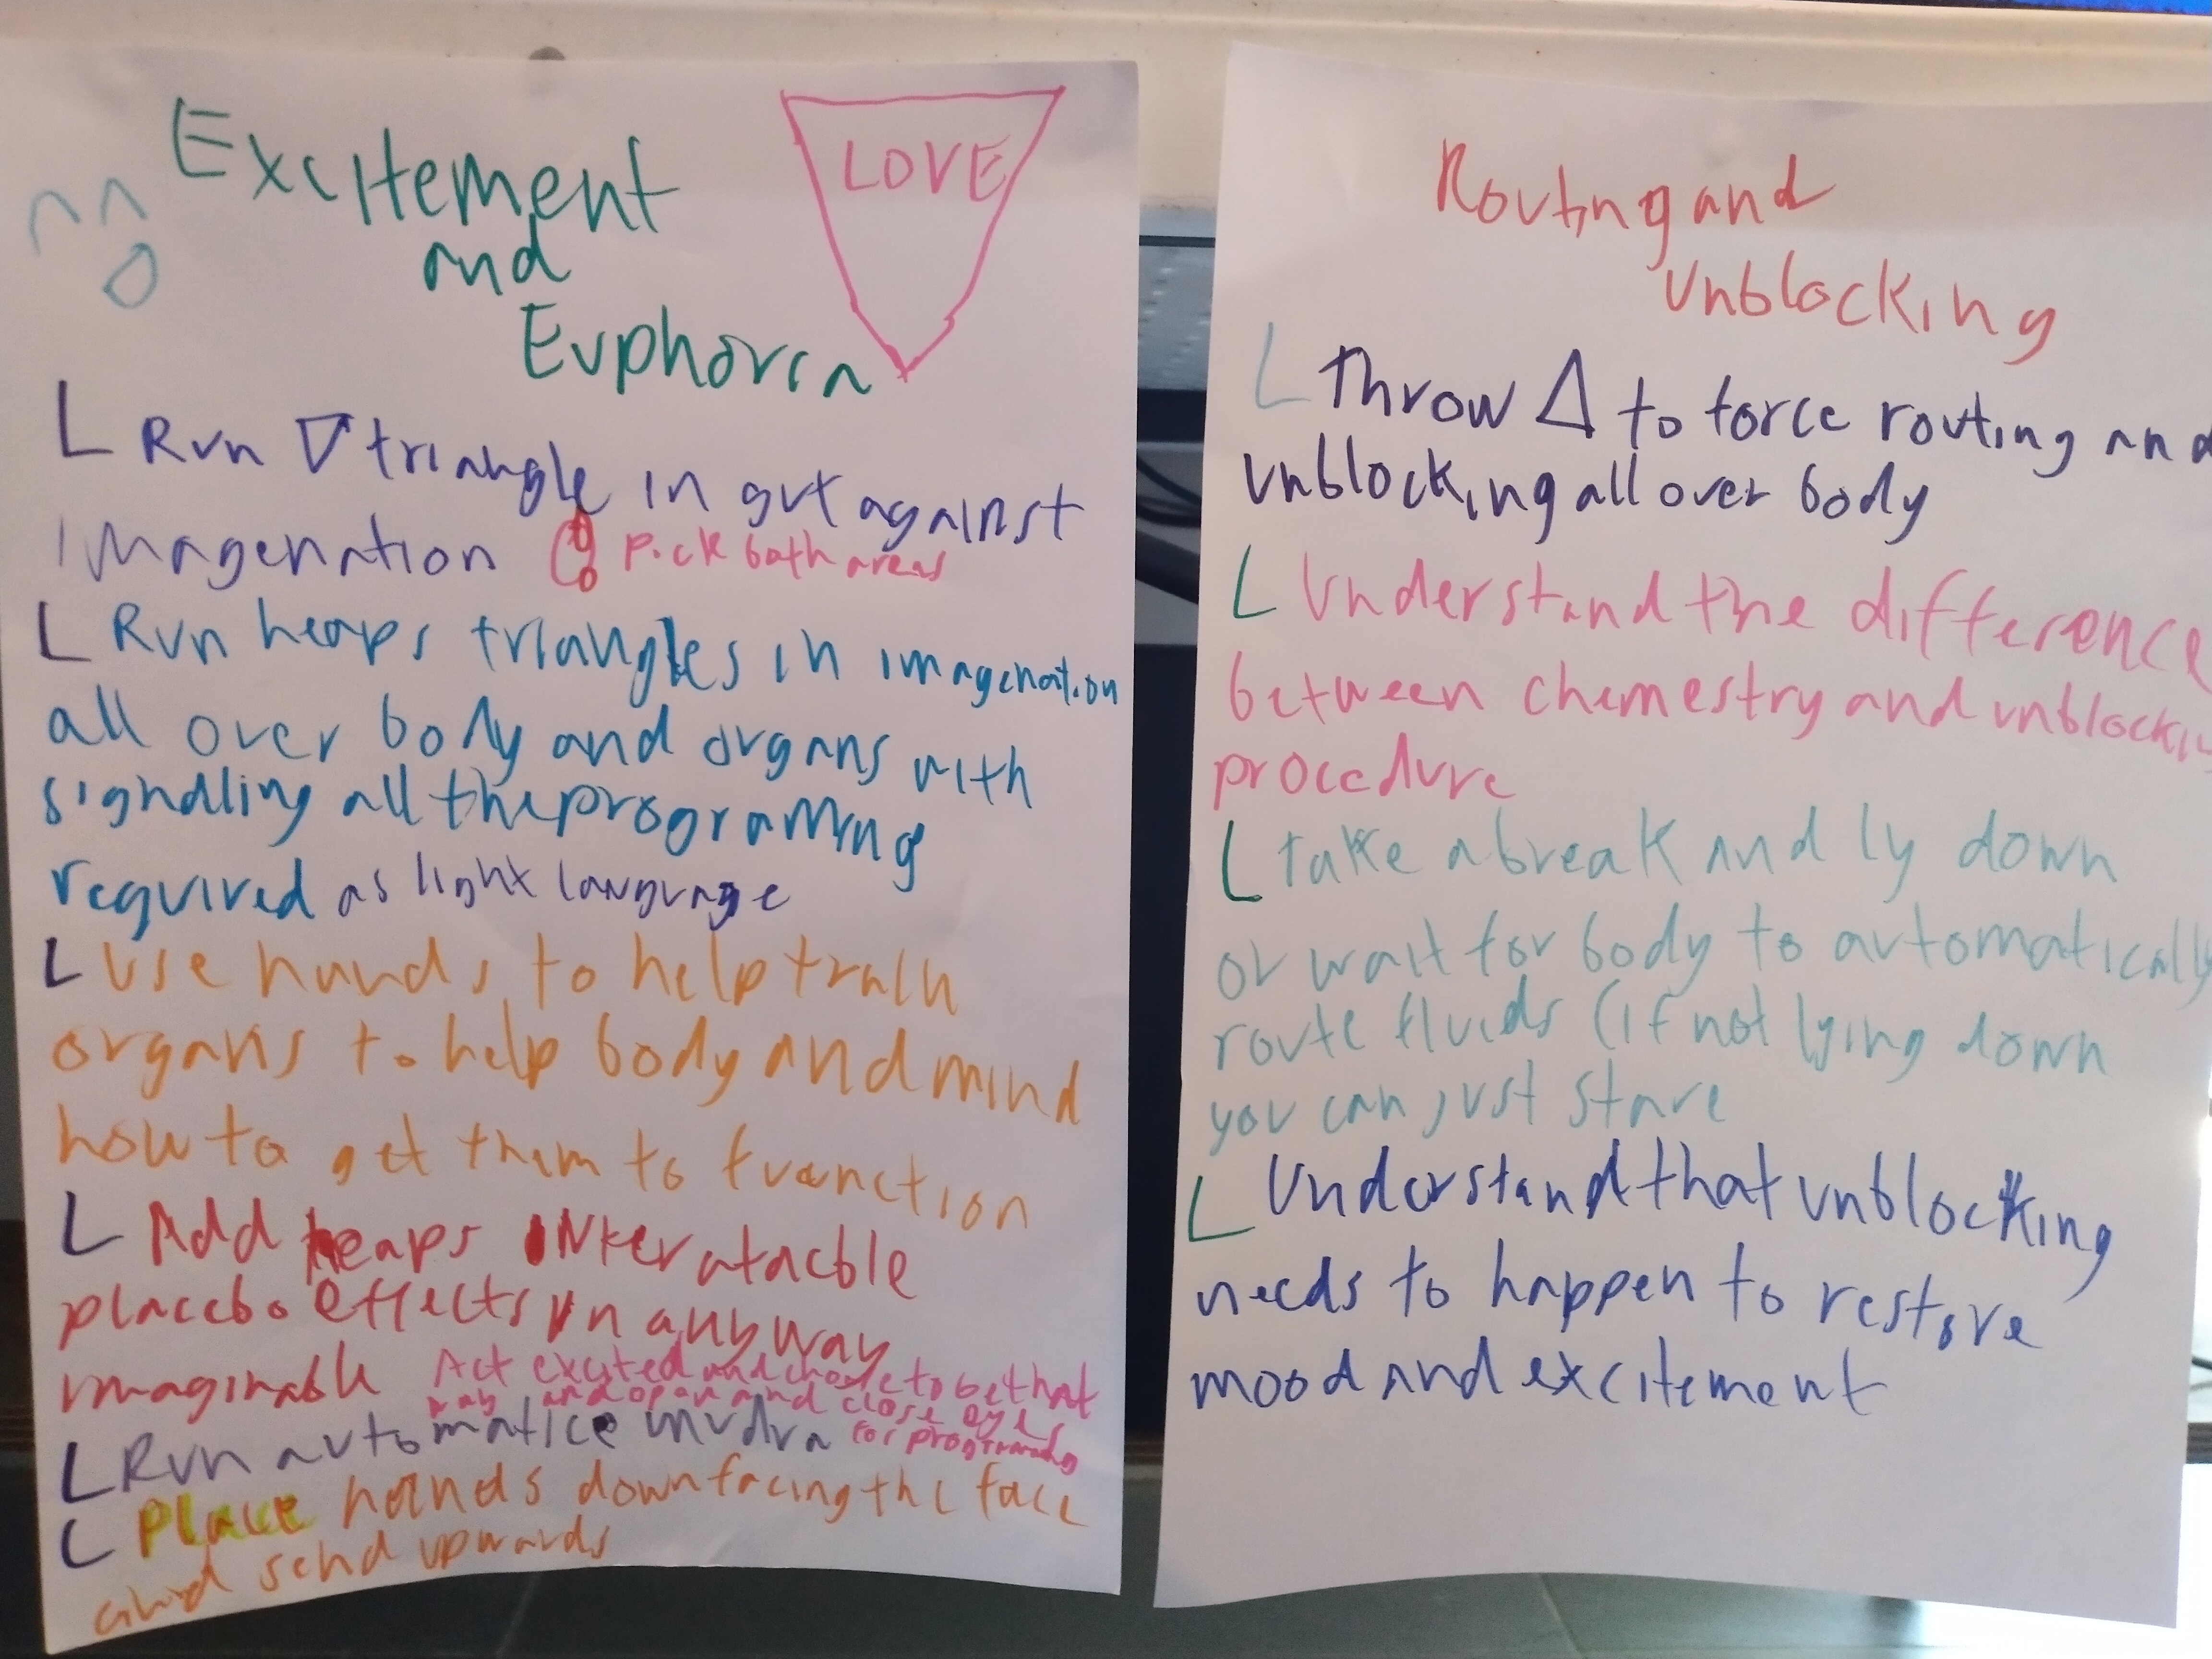 Excitement
and
Euphoria
LOVE
L Run ▽ triangle in gut against
imagenation pick both areas
L Run heaps triangles in imagenation
all over body and organs with
signalling all the programing
required as light language
L Use hands to help train
organs to help body and mind
how to get them to function
L Add heaps
placebo effects in any way
imaginable Act excited and choose to be that
way and open and close eyes
for programing
L Run automatice mudra
L Place hands down facing the face
and send upwards
Routing and
Unblocking
L Throw △ to force routing and
unblocking all over body
L Understand the difference
between chemestry and
procedure
L take a break and ly down
or wait for body to automatically
route fluids (if not lying down
you can just stare
L Understand that unblocking
needs to happen to restore
mood and excitement